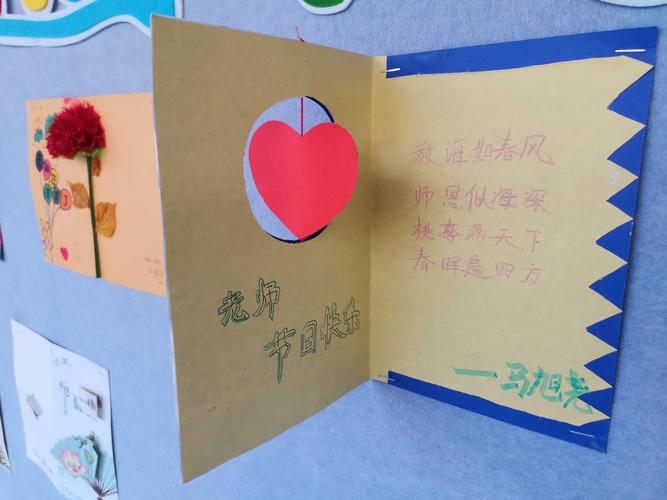 老师
节日快乐
教诲如春风
师恩似海深
桃李满天下
春晖遍四方
——马旭尧